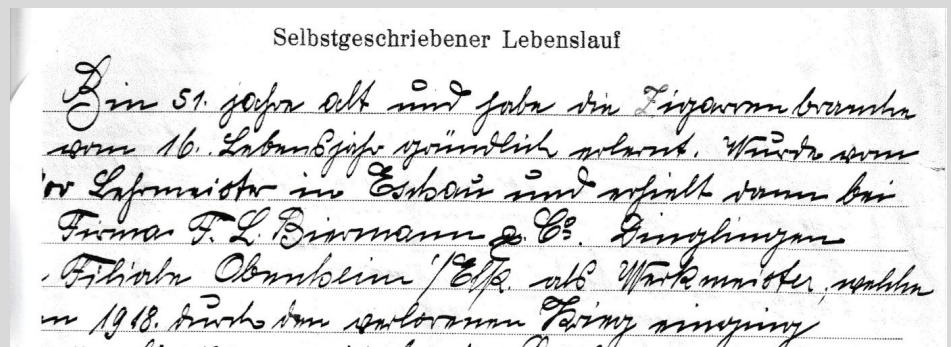 Selbstgeschriebener Lebenslauf
Bin 51. jahre alt und habe die Zigarrenbranche
vom 16. Lebensjahr gründlich erlernt. Wurde vom
Lehrmeister in Eschau und erhielt dann bei
Firma F. L. Biermann & Co. Dinglingen
Filiale Obenheim i/Els. als Werkmeister, welche
1918. durch den verlorenen Krieg einging